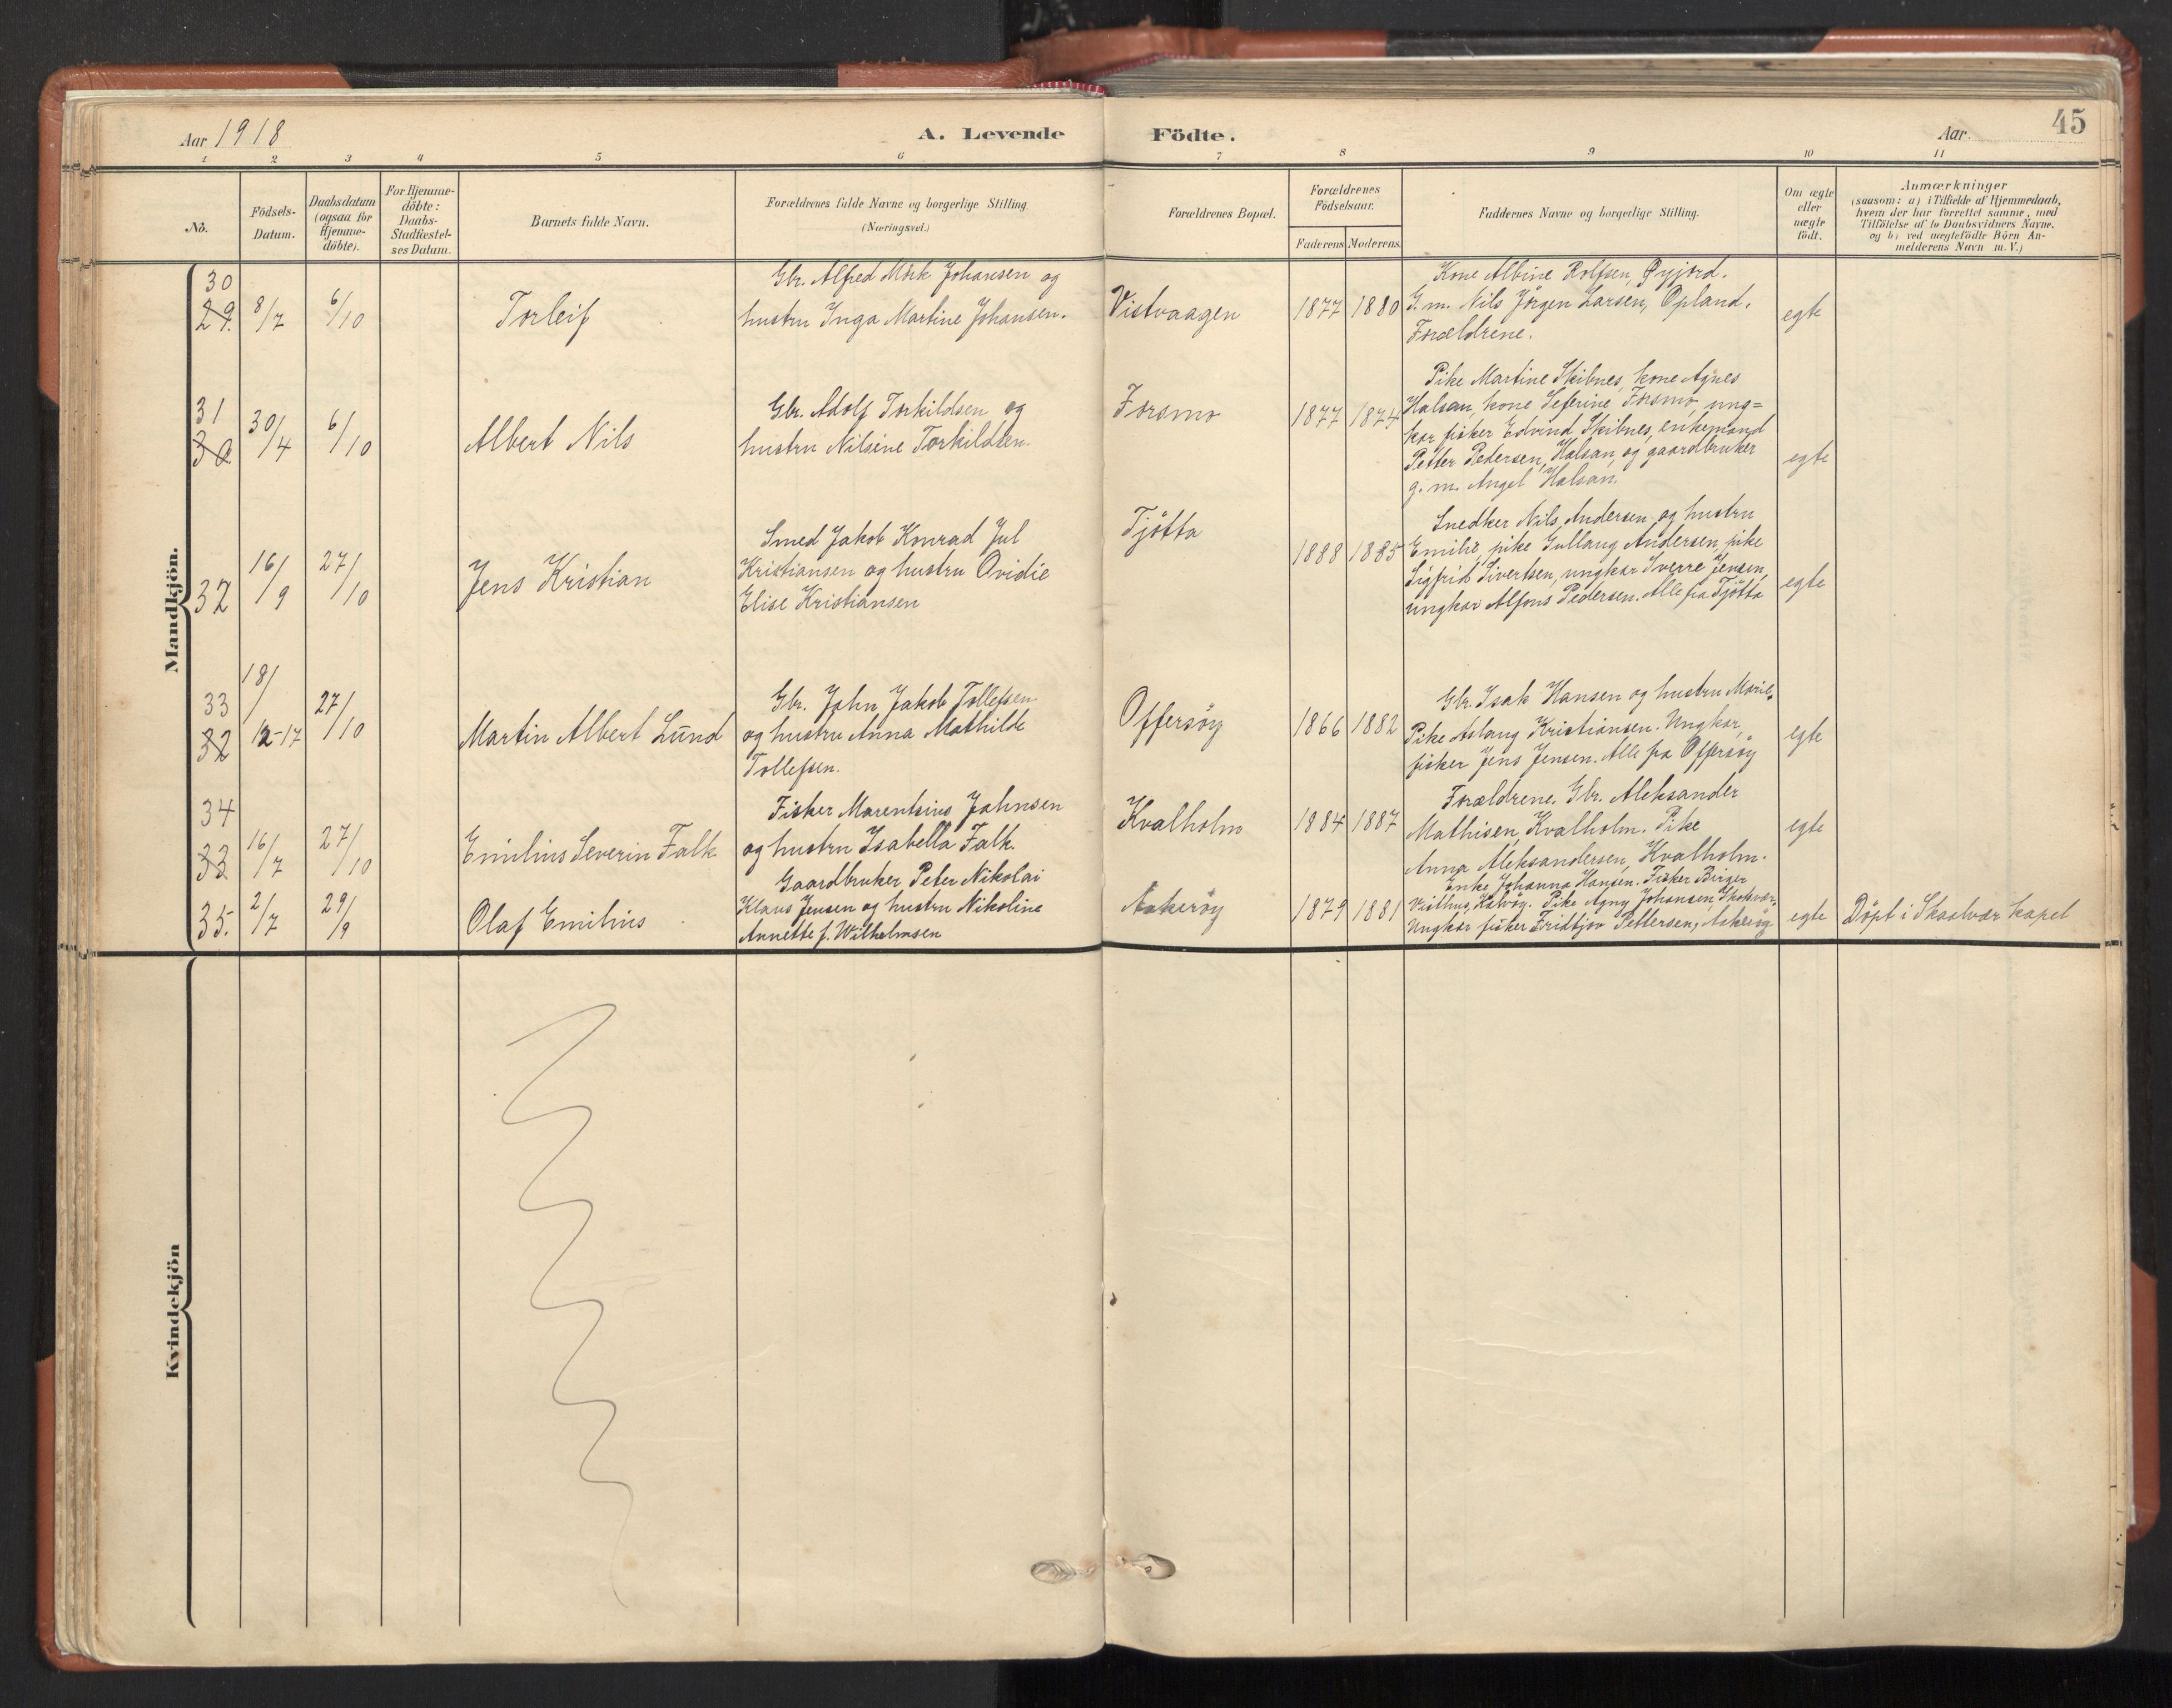 Aar 1918
A. Levende Födte.
Aar
45
1 2 3 4 5 6 7 8 9 10 11
No.
Födsels-
Datum.
Daabsdatum
(ogsaa for
Hjemme-
döbte).
For Hjemme-
döbte:
Daabs-
Stadfæstel-
ses Datum.
Barnets fulde Navn.
Forældrenes fulde Navne og borgerlige Stilling.
(Næringsvei.)
Forældrenes Bopæl.
Forældrenes
Födselsaar.
Faderens Moderens.
Faddernes Navne og borgerlige Stilling.
Om ægte
eller
uægte
födt.
Anmærkninger
(saasom: a) i Tilfælde af Hjemmedaab,
hvem der har forrettet samme, med
Tilföielse af to Daabsvidners Navne.
og b) ved uægtefödte Börn An-
melderens Navn m. V.)
Mandkjön.
30
29. 8/7 6/10
Torleif
Gbr. Alfred Mörk Johansen og
hustru Inga Martine Johansen.
Vistvaagen
1877 1880
Kone Albine Rolfsen, Øyjord.
G. m. Nils Jörgen Larsen, Opland.
Forældrene.
egte
31
30 30/4 6/10
Albert Nils
Gbr. Adolf Torkildsen og
hustru Nilsine Torkildsen.
Forsmo
1877 1874
Pike Martine Skibnes, kone Agnes
Halsan, kone Seferine Forsmo, ung=
kar fisker Edvind Skibnes, enkemand
Petter Pedersen, Halsan, og gaardbruker
g. m. Angel Halsan.
egte
32 16/9 27/10
Jens Kristian
Smed Jakob Konrad Jul
Kristiansen og hustru Ovidie
Elise Kristiansen
Tjötta
1888 1885
Snedker Nils Andersen og hustru
Emilie, pike Gullaug Andersen, pike
Sigfrid Sivertsen, ungkar Sverre Jensen,
ungkar Alfons Pedersen. Alle fra Tjötta
egte
33
32 18/12-17 27/10
Martin Albert Lund
Gbr. John Jakob Tollefsen
og hustru Anna Mathilde
Tollefsen.
Offersöy
1866 1882
Gbr. Isak Hansen og hustru Marie.
Pike Aslaug Kristiansen. Ungkar,
fisker Jens Jensen. Alle fra Offersöy
egte
34
33 16/7 27/10
Emilius Severin Falk
Fisker Marentsius Jahnsen
og hustru Isabella Falk.
Kvalholm
1884 1887
Forældrene. Gbr. Aleksander
Mathisen, Kvalholm. Pike
Anna Aleksandersen, Kvalholm.
egte
35. 2/7 29/9
Olaf Emilius
Gaardbruker Peter Nikolai
Klaus Jensen og hustru Nikoline
Annette f. Wilhelmsen
Aakeröy
1879 1881
Enke Johanna Hansen. Fisker Birger
Visthus, Kalvöy. Pike Agny Johansen, Skokvær.
Ungkar fisker Fridtjov Pettersen, Aakeröy
egte
Döpt i Skaalvær kapel
Kvindekjön